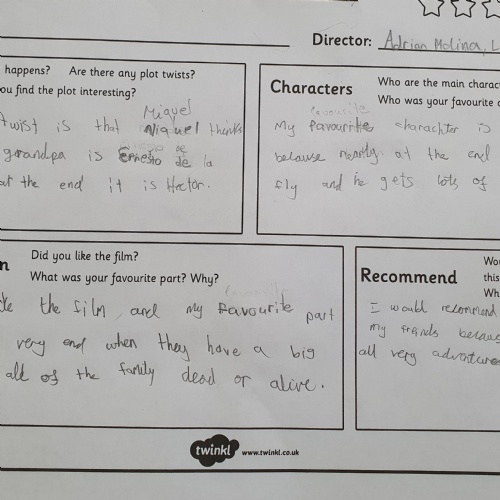 Director: Adrian Molina, L
happens? Are there any plot twists?
ou find the plot interesting?
Miguel
twist is that Niguel thinks
grandpa is Ernesto de la
at the end it is Hector.
Characters
Who are the main charact
Who was your favourite c
favourite
My favourite charachter is
because at the end
fly and he gets lots of
n
Did you like the film?
What was your favourite part? Why?
the film, and my favourite part
very end when they have a big
all of the family dead or alive.
Recommend
Wou
this
Wh
I would recommend
my friends becaus
all very adventure
twinkl www.twinkl.co.uk